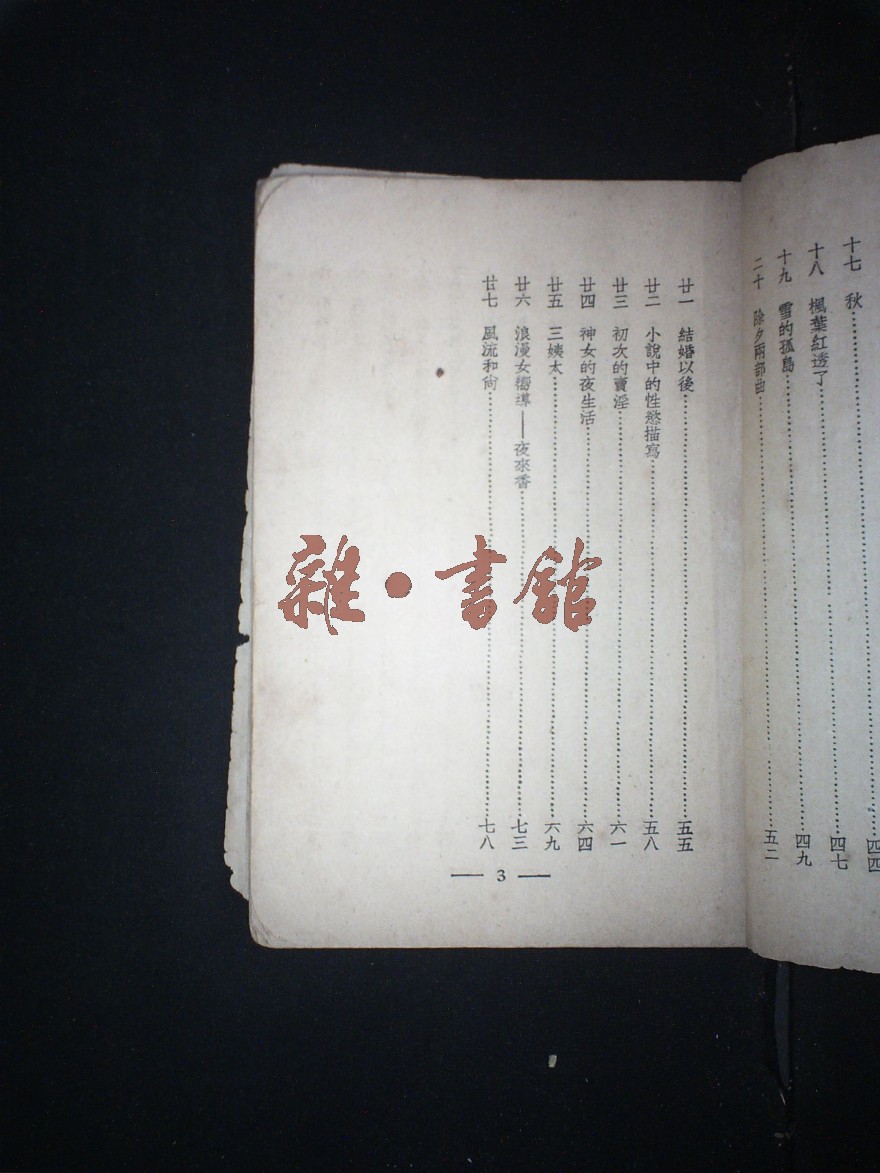 十七 秋 四四
十八 楓葉紅透了 四七
十九 雪的孤島 四九
二十 除夕兩部曲 五二
廿一 結婚以後 五五
廿二 小說中的性慾描寫 五八
廿三 初次的賣淫 六一
廿四 神女的夜生活 六四
廿五 三姨太 六九
廿六 浪漫女嚮導——夜來香 七三
廿七 風流和尙 七八
— 3 —
雜·書館